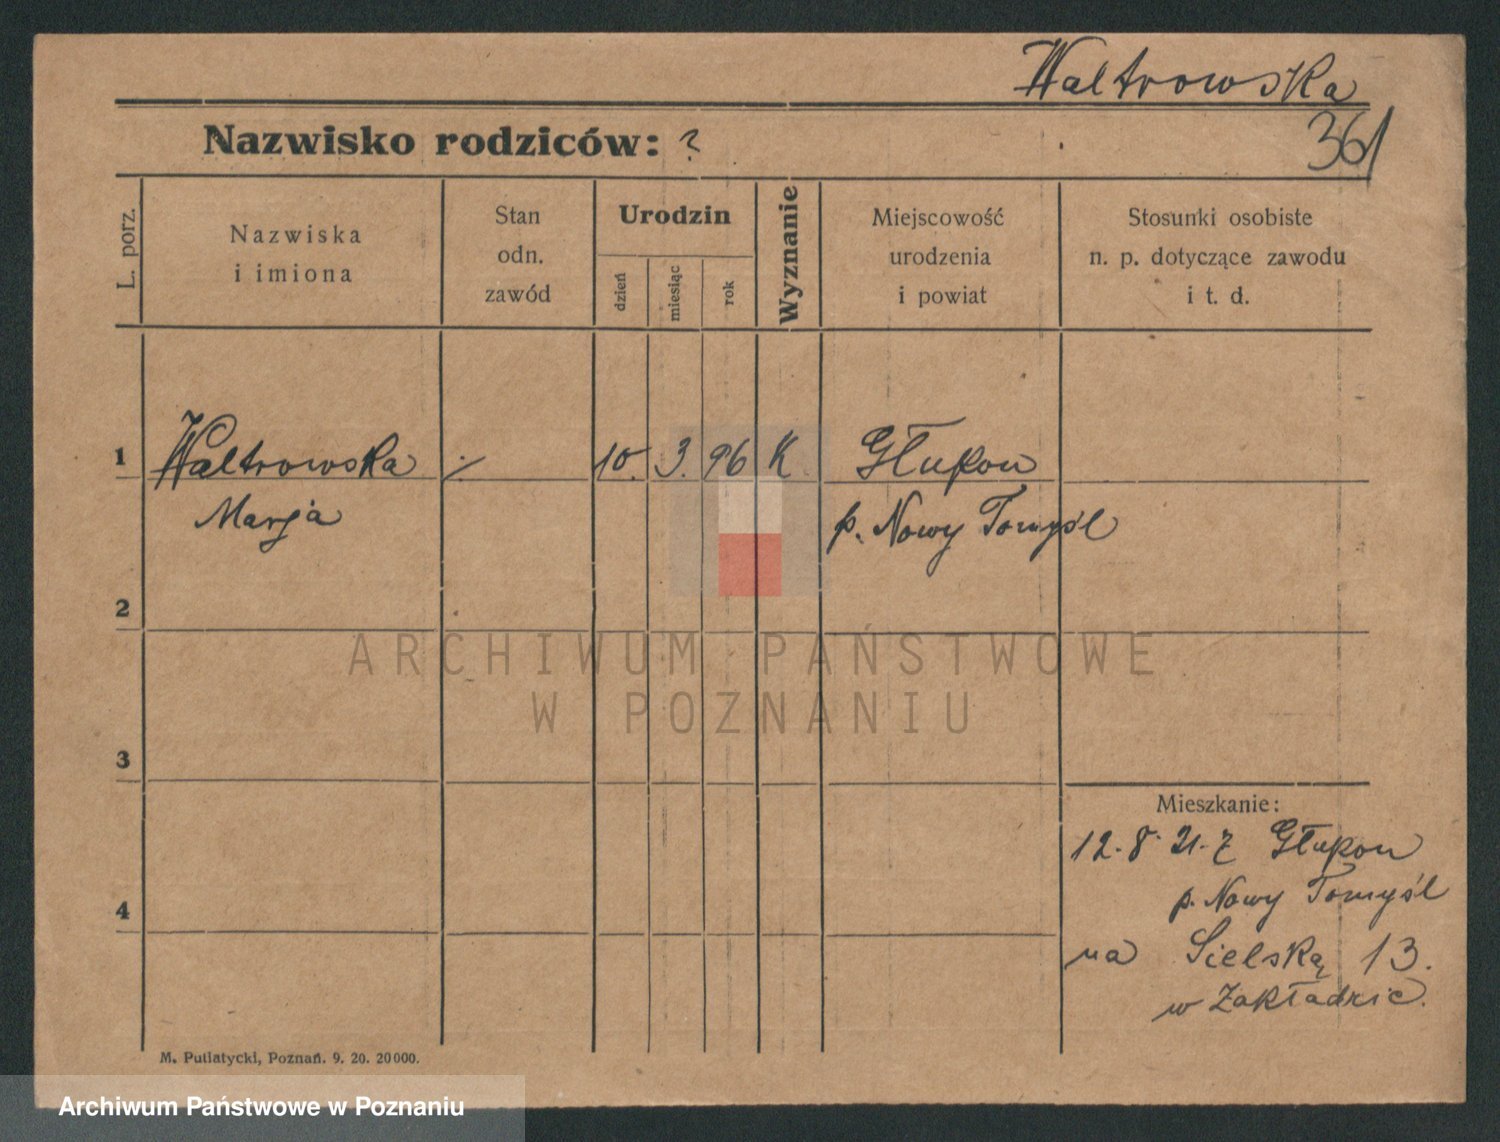 Waltrowska
361
Nazwisko rodziców: ?
L. porz.
Nazwiska
i imiona
Stan
odn.
zawód
Urodzin
dzień
miesiąc
rok
Wyznanie
Miejscowość
urodzenia
i powiat
Stosunki osobiste
n. p. dotyczące zawodu
i t. d.
1 Waltrowska ·/. 10. 3. 96 K Głupon
Marja p. Nowy Tomyśl
2
ARCHIWUM PAŃSTWOWE
W POZNANIU
3
Mieszkanie:
12. 8. 21. z Głupon
p. Nowy Tomyśl
4
na Sielską 13.
w Zakładzie.
M. Putiatycki, Poznań. 9. 20. 20000.
Archiwum Państwowe w Poznaniu